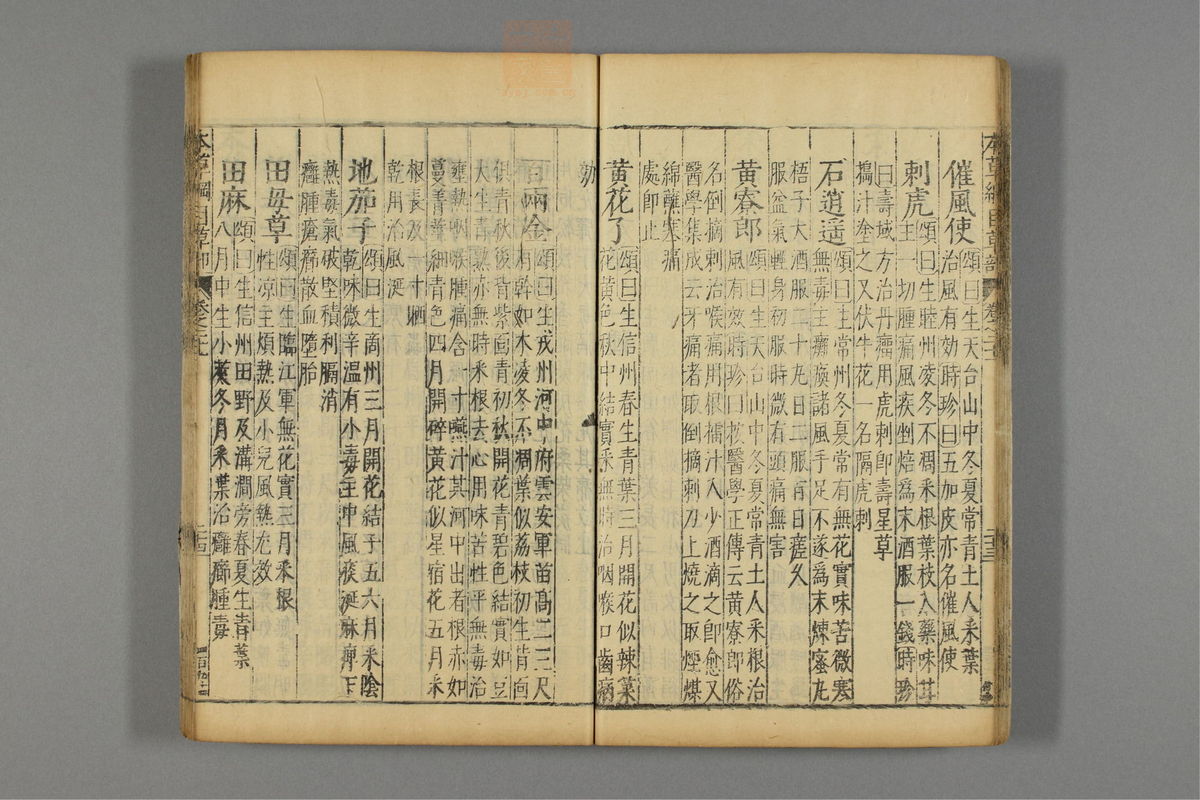 本草綱目草部 卷之二十一 二十三
催風使 頌曰生天台山中冬夏常青土人采葉
治風有効時珍曰五加皮亦名催風使
刺虎 頌曰生睦州凌冬不凋采根葉枝入藥味甘
主一切腫痛風疾剉焙爲末酒服一錢時珍
曰壽域方治丹瘤用虎刺卽壽星草
搗汁塗之又伏牛花一名隔虎刺
石逍遥 頌曰生常州冬夏常有無花實味苦微寒
無毒主癱瘓諸風手足不遂爲末煉蜜丸
梧子大酒服二十丸日二服百日瘥久
服益氣輕身初服時微有頭痛無害
黄寮郎 頌曰生天台山中冬夏常青土人采根治
風有效時珍曰按醫學正傳云黄寮郎俗
名倒摘刺治喉痛用根擂汁入少酒滴之卽愈又
醫學集成云牙痛者取倒摘刺刀上燒之取煙煤
綿蘸塞痛
處卽止
黄花了 頌曰生信州春生青葉三月開花似辣菜
花黄色秋中結實采無時治咽喉口齒病
効
百兩金 頌曰生戎州河中府雲安軍苗高二三尺
有幹如木凌冬不凋葉似荔枝初生背面
俱青秋後背紫面青初秋開花青碧色結實如豆
大生青熟赤無時采根去心用味苦性平無毒治
壅熱咽喉腫痛含一寸嚥汁其河中出者根赤如
蔓菁莖細青色四月開碎黄花似星宿花五月采
根長及一寸晒
乾用治風涎
地茄子 頌曰生商州三月開花結子五六月采陰
乾味微辛溫有小毒主中風痰涎麻痺下
熱毒氣破堅積利膈消
癰腫瘡癤散血墮胎
田母草 頌曰生臨江軍無花實三月采根
性凉主煩熱及小兒風熱尤效
田麻 頌曰生信州田野及溝澗旁春夏生青葉
八月中生小莢冬月采葉治癰癤腫毒
本草綱目草部